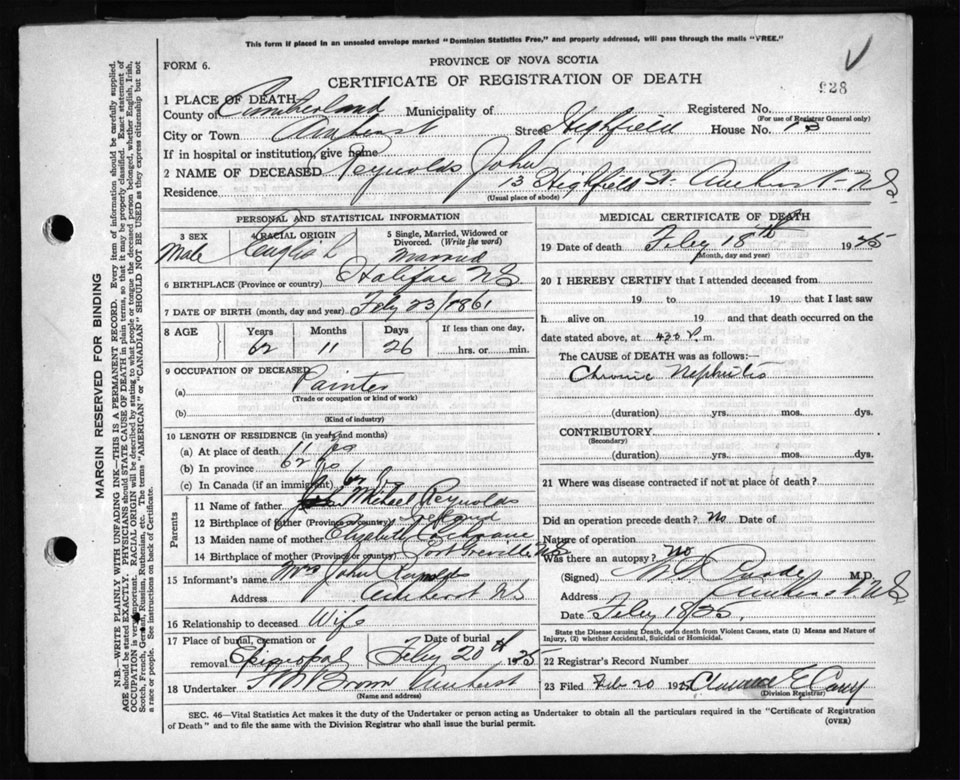 This form if placed in an unsealed envelope marked "Dominion Statistics Free," and properly addressed, will pass through the mails "FREE."
FORM 6.
PROVINCE OF NOVA SCOTIA
CERTIFICATE OF REGISTRATION OF DEATH
928
1 PLACE OF DEATH
County of Cumberland Municipality of Registered No.
(For use of Registrar General only)
City or Town Amherst Street Highfield House No. 13
If in hospital or institution, give name
2 NAME OF DECEASED Reynolds John
Residence 13 Highfield St. Amherst N.S.
(Usual place of abode)
MARGIN RESERVED FOR BINDING
N.B.—WRITE PLAINLY WITH UNFADING INK—THIS IS A PERMANENT RECORD. Every item of information should be carefully supplied.
AGE should be stated EXACTLY. PHYSICIANS should STATE CAUSE OF DEATH in plain terms, so that it may be properly classified. Exact statement of
OCCUPATION is very important. RACIAL ORIGIN will be described by stating to what people or tongue the deceased person belonged, whether English, Irish,
Scotch, French, German, Russian, Ruthenian, etc. The terms "AMERICAN" or "CANADIAN" SHOULD NOT BE USED as they express citizenship but not
a race or people. See instructions on back of Certificate.
PERSONAL AND STATISTICAL INFORMATION
3 SEX
Male
4 RACIAL ORIGIN
English
5 Single, Married, Widowed or
Divorced. (Write the word)
Married
6 BIRTHPLACE (Province or country) Halifax NS
7 DATE OF BIRTH (month, day and year) Feby 23/1861
8 AGE Years Months Days If less than one day,
62 11 26 hrs. or min.
9 OCCUPATION OF DECEASED
(a) Painter
(Trade or occupation or kind of work)
(b)
(Kind of industry)
10 LENGTH OF RESIDENCE (in years and months)
(a) At place of death 11
(b) In province 62
(c) In Canada (if an immigrant)
Parents
11 Name of father Michael Reynolds
12 Birthplace of father (Province or country) Ireland
13 Maiden name of mother Elizabeth
14 Birthplace of mother (Province or country) Port Greville NS
15 Informant's name Mrs John
Address Amherst NS
16 Relationship to deceased Wife
17 Place of burial, cremation or Date of burial
removal Episcopal Feby 20th 1925
18 Undertaker Brown Amherst
(Name and address)
MEDICAL CERTIFICATE OF DEATH
19 Date of death Feby 18th 1925
(Month, day and year)
20 I HEREBY CERTIFY that I attended deceased from
19 to 19 that I last saw
h alive on 19 and that death occurred on the
date stated above, at 430 P. m.
The CAUSE OF DEATH was as follows:
Chronic Nephritis
(duration) yrs. mos. dys.
CONTRIBUTORY
(Secondary)
(duration) yrs. mos. dys.
21 Where was disease contracted if not at place of death?
Did an operation precede death? No Date of
Nature of operation
Was there an autopsy? No
(Signed) M.D.
Address Amherst NS
Date Feby 18/25
State the Disease causing Death, or in death from Violent Causes, state (1) Means and Nature of
Injury, (2) whether Accidental, Suicidal or Homicidal.
22 Registrar's Record Number
23 Filed Feb 20 1925 Clarence E.
(Division Registrar)
SEC. 46—Vital Statistics Act makes it the duty of the Undertaker or person acting as Undertaker to obtain all the particulars required in the "Certificate of Registration
of Death" and to file the same with the Division Registrar who shall issue the burial permit.
(OVER)